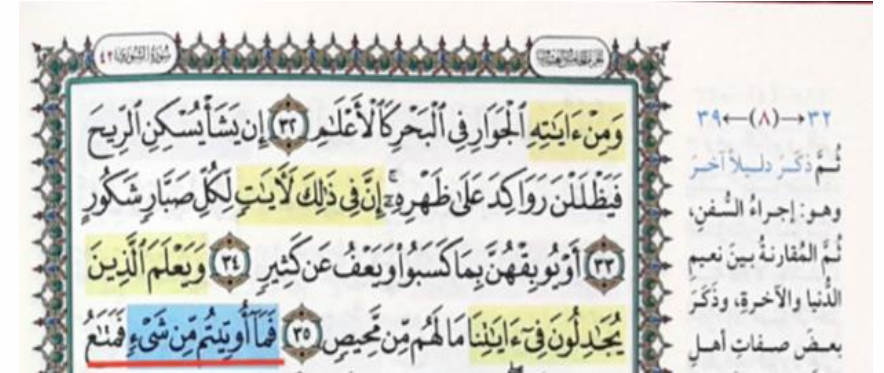 سُورَةُ الشُّورَىٰ ٤٢
الجزء الخامس والعشرون
وَمِنْ ءَايَـٰتِهِ ٱلْجَوَارِ فِى ٱلْبَحْرِ كَٱلْأَعْلَـٰمِ ٣٢ إِن يَشَأْ يُسْكِنِ ٱلرِّيحَ
فَيَظْلَلْنَ رَوَاكِدَ عَلَىٰ ظَهْرِهِۦٓ ۚ إِنَّ فِى ذَٰلِكَ لَـَٔايَـٰتٍ لِّكُلِّ صَبَّارٍ شَكُورٍ
٣٣ أَوْ يُوبِقْهُنَّ بِمَا كَسَبُوا۟ وَيَعْفُ عَن كَثِيرٍ ٣٤ وَيَعْلَمَ ٱلَّذِينَ
يُجَـٰدِلُونَ فِىٓ ءَايَـٰتِنَا مَا لَهُم مِّن مَّحِيصٍ ٣٥ فَمَآ أُوتِيتُم مِّن شَىْءٍ فَمَتَـٰعُ
٣٢→(٨)←٣٩
ثُمَّ ذكَرَ دليلاً آخرَ
وهو: إجراءُ السُّفنِ،
ثُمَّ المُقارنةُ بينَ نعيمِ
الدُّنيا والآخرةِ، وذَكَرَ
بعضَ صفاتِ أهلِ